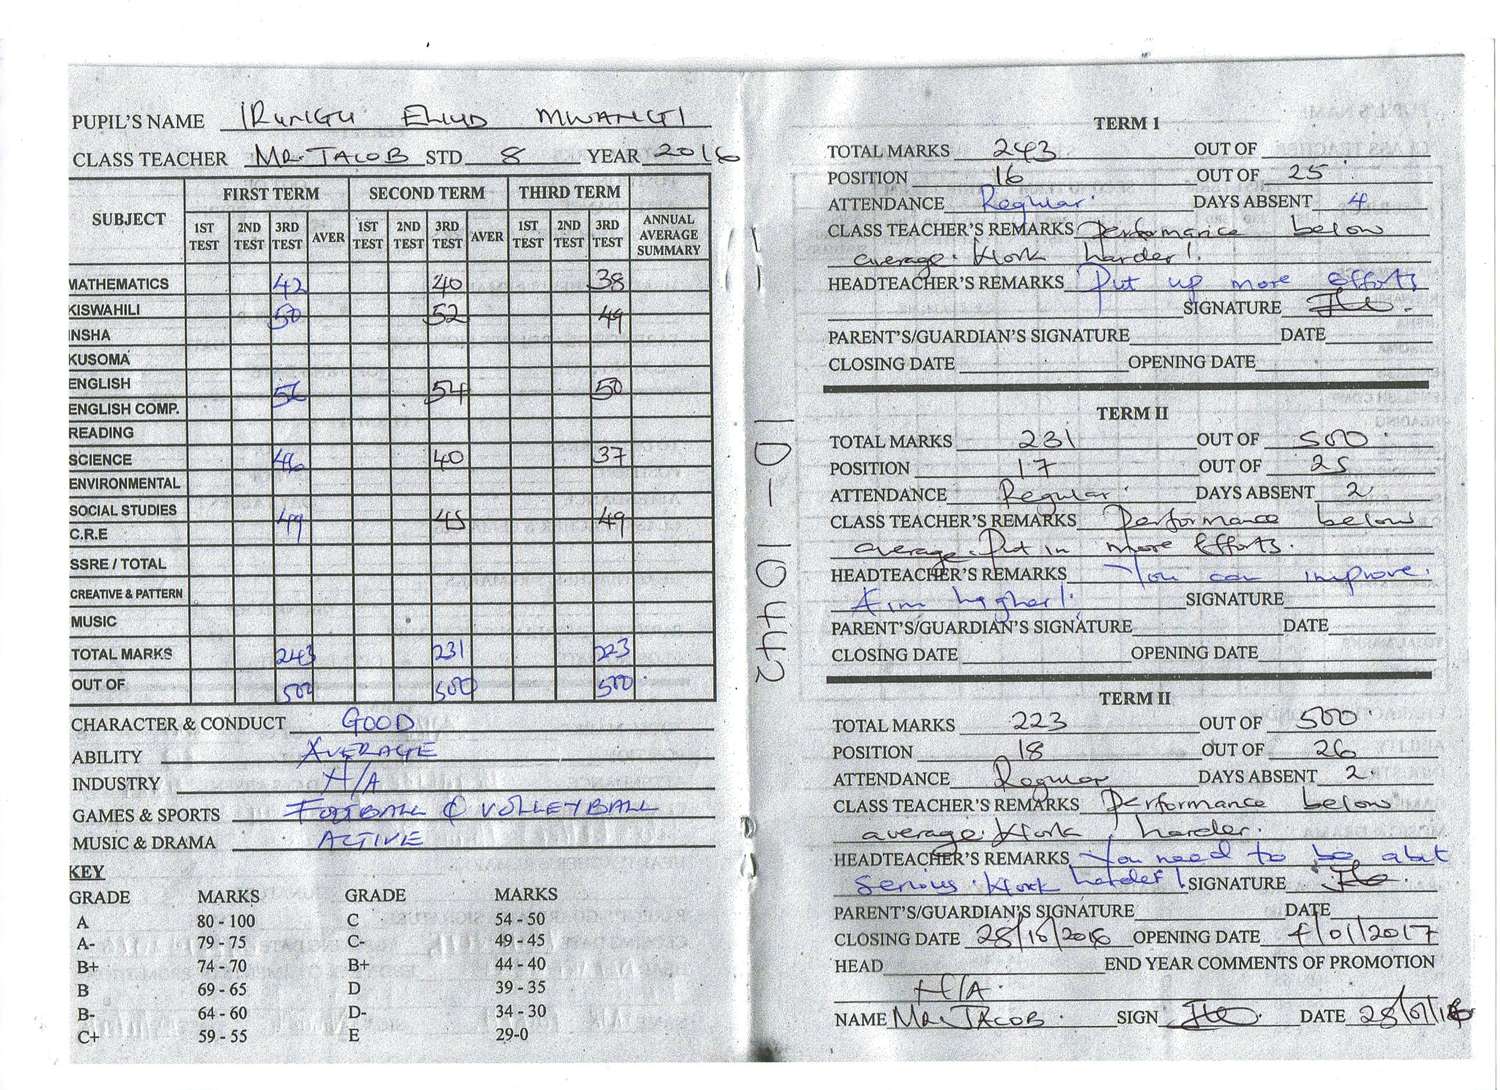 PUPIL'S NAME IRUNGU ELIUD MWANGI
CLASS TEACHER MR. JACOB STD 8 YEAR 2016
SUBJECT FIRST TERM SECOND TERM THIRD TERM ANNUAL AVERAGE SUMMARY
1ST TEST 2ND TEST 3RD TEST AVER 1ST TEST 2ND TEST 3RD TEST AVER 1ST TEST 2ND TEST 3RD TEST
MATHEMATICS 42 40 38
KISWAHILI 50 52 49
INSHA
KUSOMA
ENGLISH 56 54 50
ENGLISH COMP.
READING
SCIENCE 46 40 37
ENVIRONMENTAL
SOCIAL STUDIES 49 45 49
C.R.E
SSRE / TOTAL
CREATIVE & PATTERN
MUSIC
TOTAL MARKS 243 231 223
OUT OF 500 500 500
CHARACTER & CONDUCT GOOD
ABILITY AVERAGE
INDUSTRY H/A
GAMES & SPORTS FOOTBALL & VOLLEYBALL
MUSIC & DRAMA ACTIVE
KEY
GRADE MARKS GRADE MARKS
A 80 - 100 C 54 - 50
A- 79 - 75 C- 49 - 45
B+ 74 - 70 B+ 44 - 40
B 69 - 65 D 39 - 35
B- 64 - 60 D- 34 - 30
C+ 59 - 55 E 29-0
10-10442
TERM I
TOTAL MARKS 243 OUT OF
POSITION 16 OUT OF 25
ATTENDANCE Regular. DAYS ABSENT 4
CLASS TEACHER'S REMARKS Performance below
average. Work harder!
HEADTEACHER'S REMARKS Put up more efforts
SIGNATURE
PARENT'S/GUARDIAN'S SIGNATURE DATE
CLOSING DATE OPENING DATE
TERM II
TOTAL MARKS 231 OUT OF 500
POSITION 17 OUT OF 25
ATTENDANCE Regular. DAYS ABSENT 2
CLASS TEACHER'S REMARKS Performance below
average. Put in more efforts.
HEADTEACHER'S REMARKS You can improve.
Aim higher!
SIGNATURE
PARENT'S/GUARDIAN'S SIGNATURE DATE
CLOSING DATE OPENING DATE
TERM II
TOTAL MARKS 223 OUT OF 500
POSITION 18 OUT OF 26
ATTENDANCE Regular DAYS ABSENT 2
CLASS TEACHER'S REMARKS Performance below
average. Work harder.
HEADTEACHER'S REMARKS You need to be abit
serious. Work harder! SIGNATURE
PARENT'S/GUARDIAN'S SIGNATURE DATE
CLOSING DATE 28/10/2016 OPENING DATE 4/01/2017
HEAD END YEAR COMMENTS OF PROMOTION
H/A.
NAME MR. JACOB. SIGN DATE